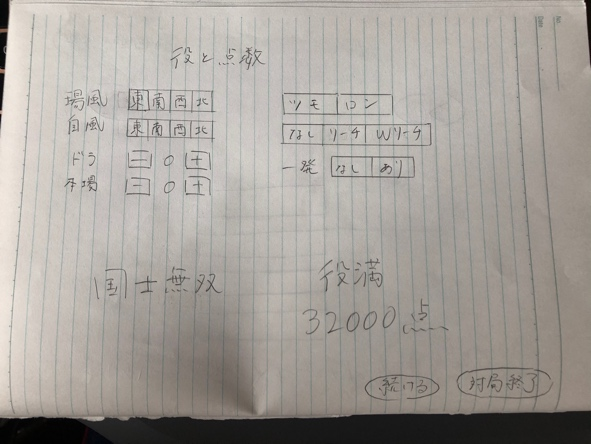 役と点数
場風 東 南 西 北
自風 東 南 西 北
ドラ － 0 ＋
本場 － 0 ＋
ツモ ロン
なし リーチ Wリーチ
一発 なし あり
国士無双
役満
32000点
続ける 対局終了